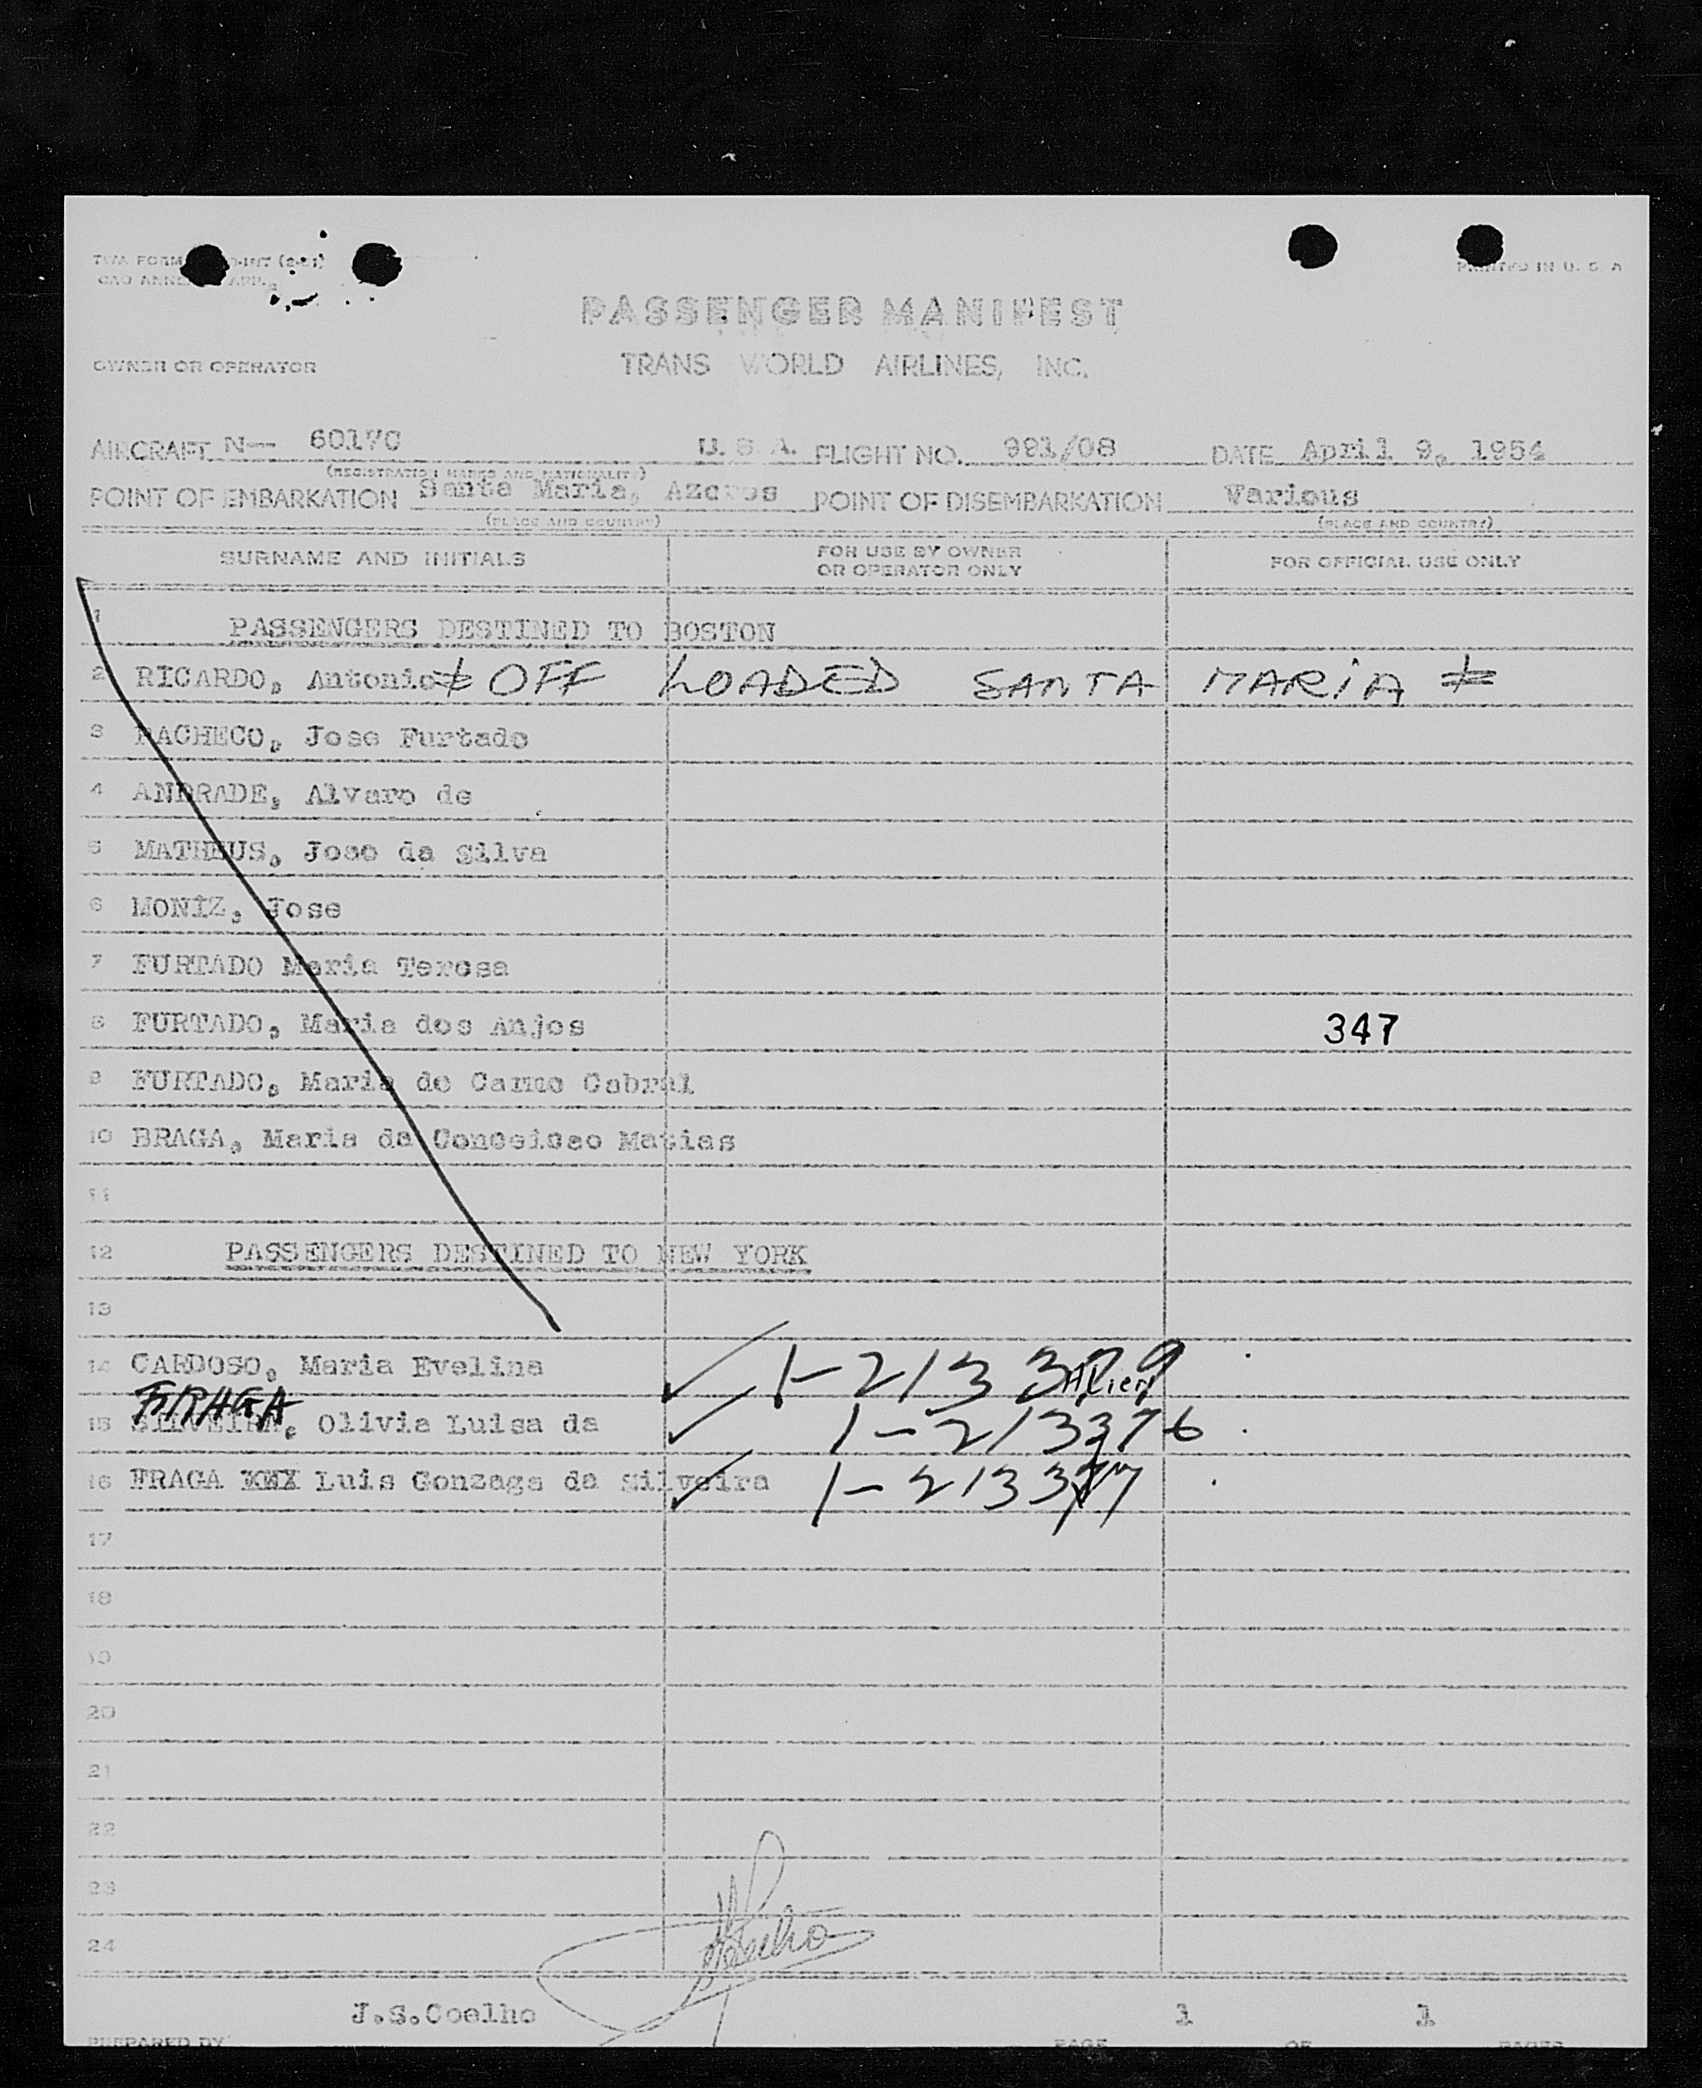 TWA FORM INT (2-51)
PRINTED IN U. S. A
PASSENGER MANIFEST
OWNER OR OPERATOR TRANS WORLD AIRLINES, INC.
AIRCRAFT N-- 6017C U. S. A. FLIGHT NO. 981/08 DATE April 9, 1954
(REGISTRATION MARKS AND NATIONALITY)
POINT OF EMBARKATION Santa Maria, Azores POINT OF DISEMBARKATION Various
(PLACE AND COUNTRY) (PLACE AND COUNTRY)
SURNAME AND INITIALS FOR USE BY OWNER OR OPERATOR ONLY FOR OFFICIAL USE ONLY
1 PASSENGERS DESTINED TO BOSTON
2 RICARDO, Antonio OFF LOADED SANTA MARIA
3 PACHECO, Jose Furtado
4 ANDRADE, Alvaro de
5 MATHEUS, Jose da Silva
6 MONIZ, Jose
7 FURTADO Maria Teresa
8 FURTADO, Maria dos Anjos 347
9 FURTADO, Maria do Carmo Cabral
10 BRAGA, Maria da Conceicao Matias
11
12 PASSENGERS DESTINED TO NEW YORK
13
14 CARDOSO, Maria Evelina 1-213 379 Alien
FRAGA
15 SILVEIRA, Olivia Luisa da 1-213376
16 FRAGA XXX Luis Gonzaga da Silveira 1-213377
17
18
19
20
21
22
23
24
J.S.Coelho 1 1
PREPARED BY PAGE OF PAGES